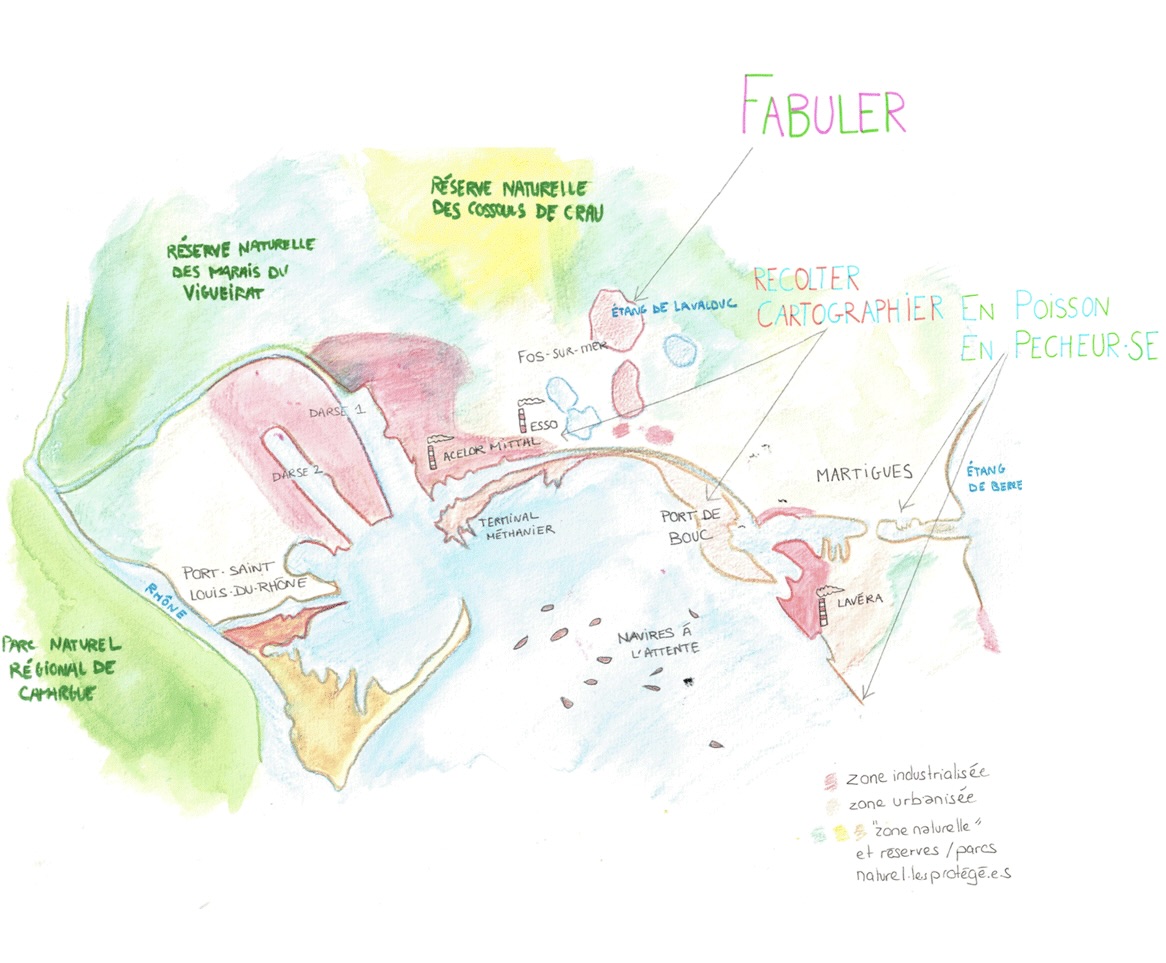 FABULER
RÉSERVE NATURELLE
DES COSSOULS DE CRAU
RÉSERVE NATURELLE
DES MARAIS DU
VIGUEIRAT
RECOLTER
CARTOGRAPHIER
EN POISSON
EN PECHEUR·SE
ÉTANG DE LAVALDUC
FOS-SUR-MER
DARSE 1
ESSO
ACELOR MITTAL
DARSE 2
MARTIGUES
ÉTANG
DE BERE
TERMINAL
MÉTHANIER
PORT DE
BOUC
PORT-SAINT
LOUIS-DU-RHÔNE
RHÔNE
LAVÉRA
NAVIRES À
L'ATTENTE
PARC NATUREL
RÉGIONAL DE
CAMARGUE
zone industrialisée
zone urbanisée
"zone naturelle"
et réserves / parcs
naturel·les protégé.e.s